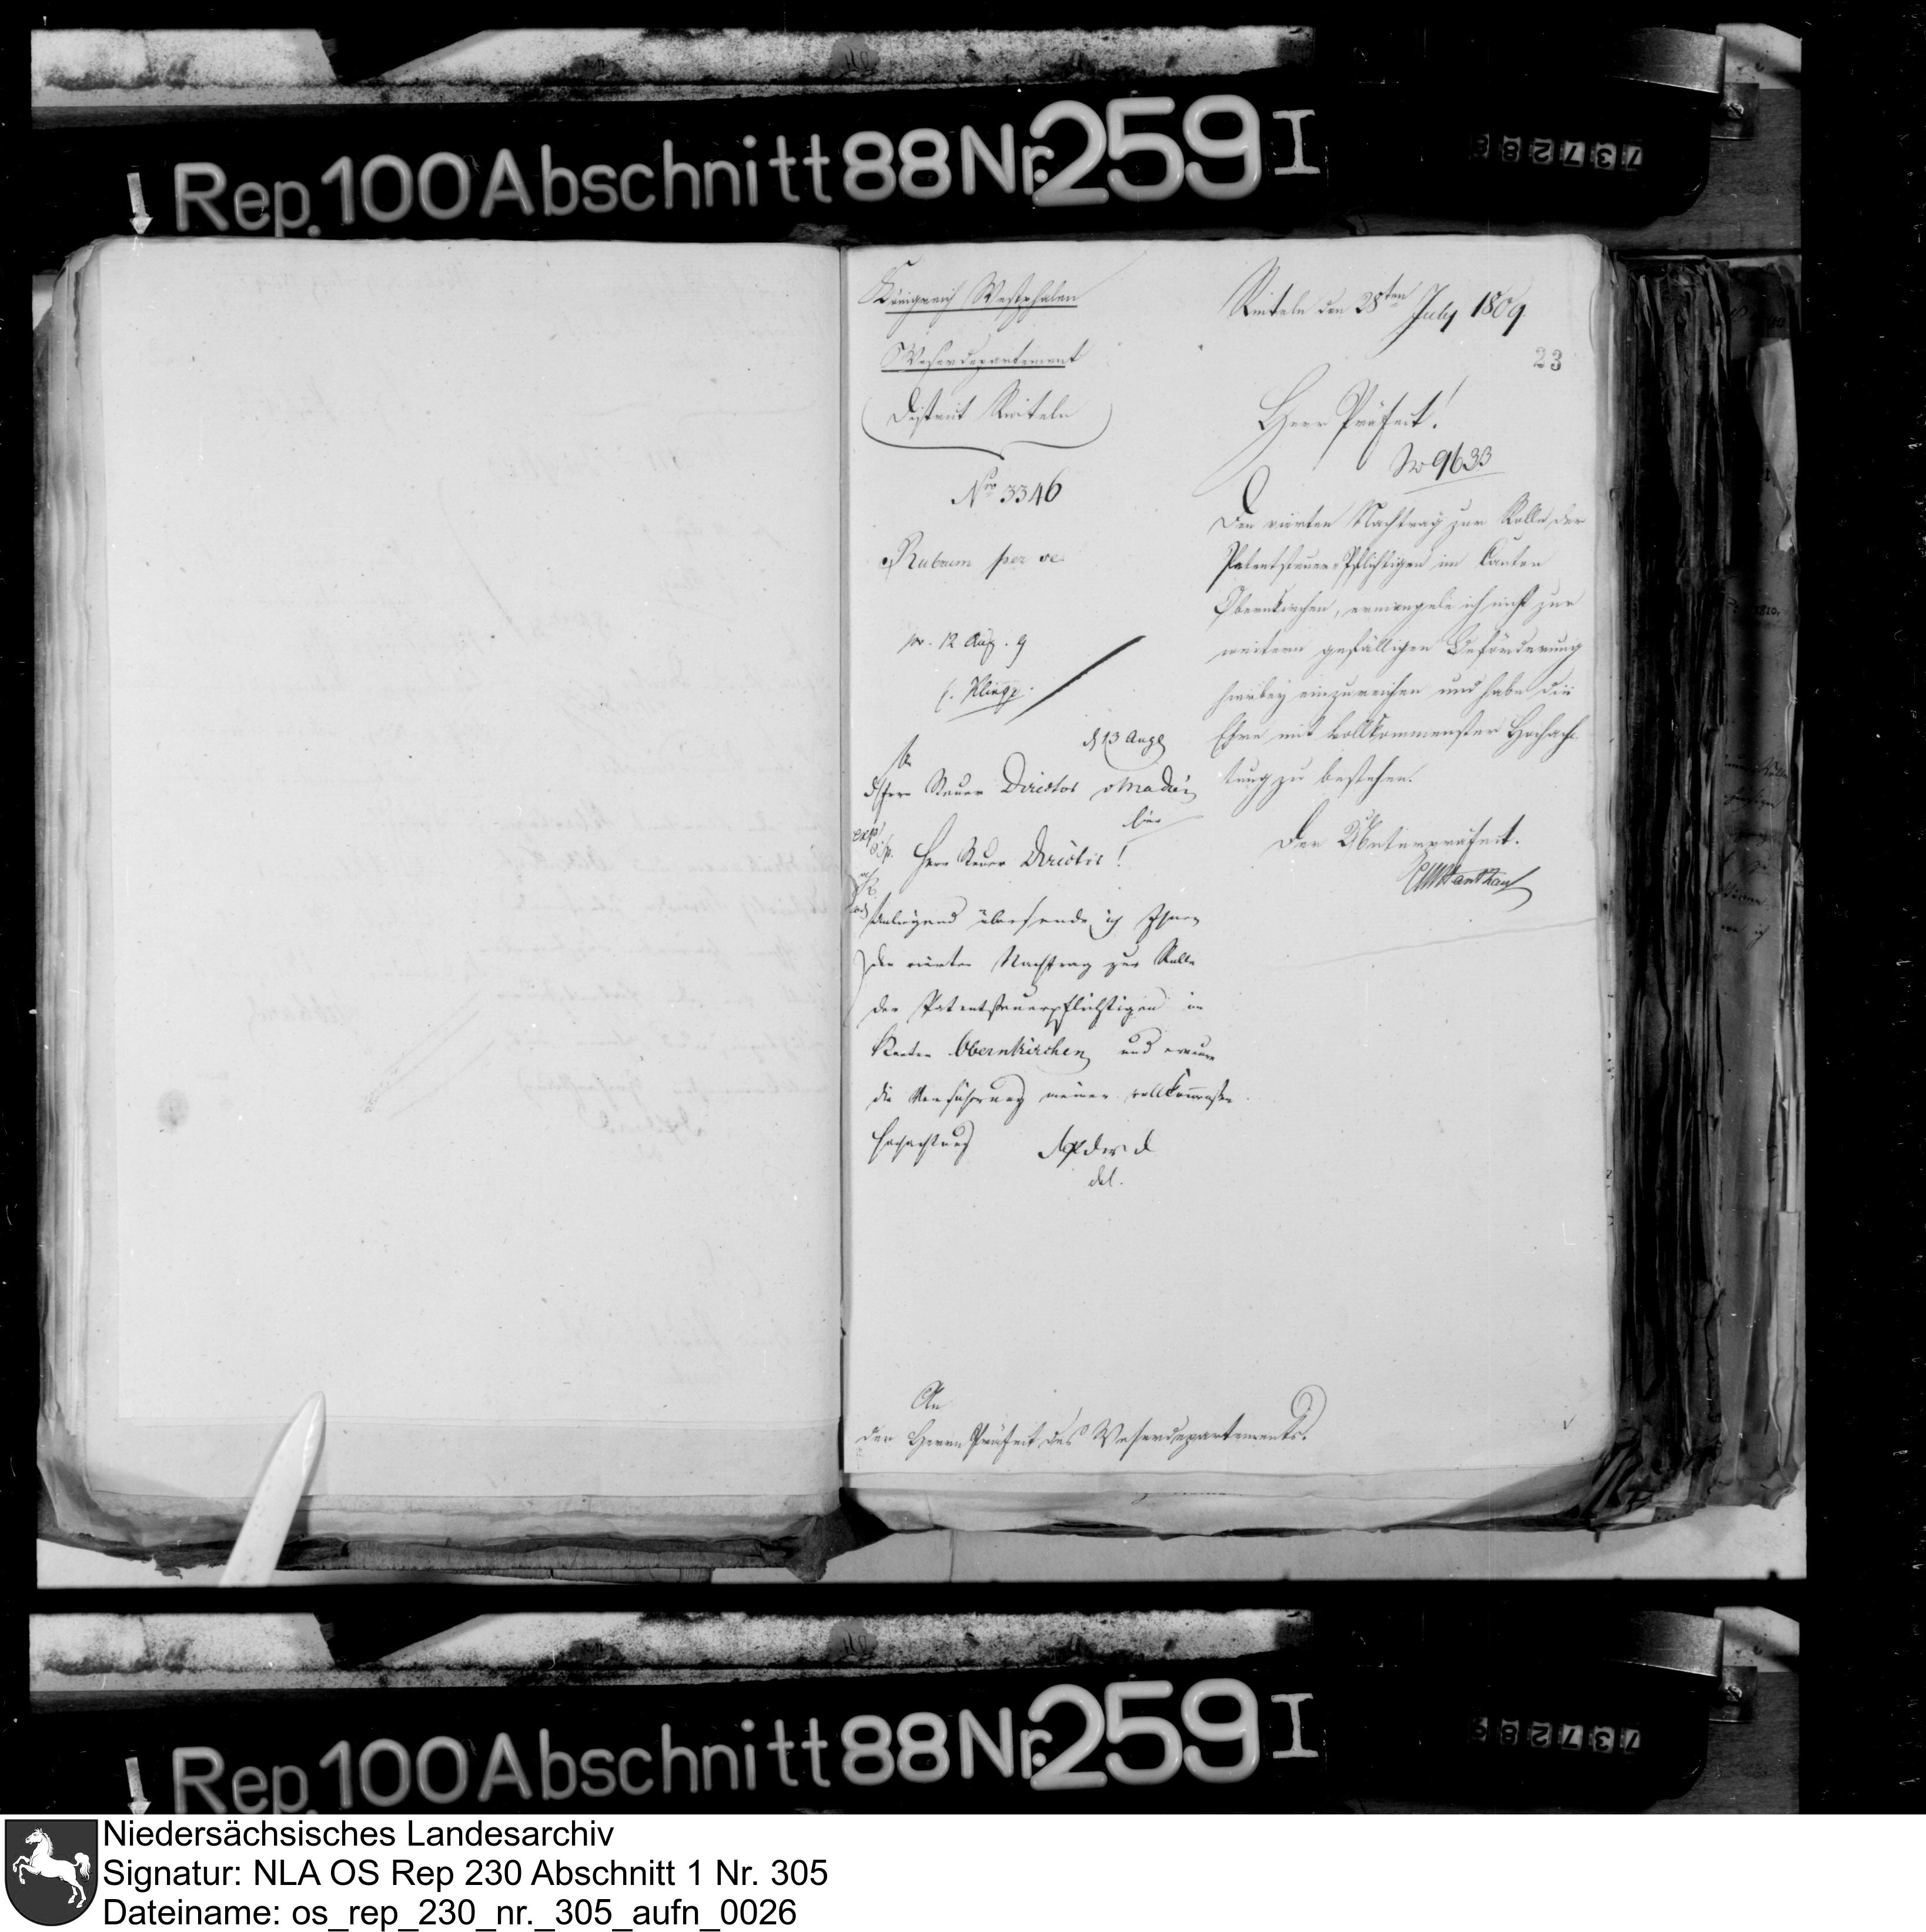 Rep. 100 Abschnitt 88 Nr. 259 I
737288
Königreich Westphalen
Weserdepartement
District Rinteln
Nro 3346
Rubrum per se
pr. 12 Aug. 9
Rinteln den 28ten July 1809
23
Herr Präfect!
No 9633
Den vierten Nachtrag zur Rolle der
Patentsteuer-Pflichtigen im Canton
Obernkirchen, ermangele ich nicht zur
weitern gefälligen Beförderung
hierbey einzureichen und habe die
Ehre mit vollkommenster Hochach
tung zu bestehen.
Der Unterpräfect.
d 13 Aug
An
d Herrn Steuer Director
hier
Herr Steuer Director!
Anliegend übersende ich Ihnen
den vierten Nachtrag zur Rolle
der Patentsteuerpflichtigen im
Canton Obernkirchen und erneure
die Versicherung meiner vollkommensten
Hochachtung
An
den Herrn Präfect des Weserdepartements.
Rep. 100 Abschnitt 88 Nr. 259 I
Niedersächsisches Landesarchiv
Signatur: NLA OS Rep 230 Abschnitt 1 Nr. 305
Dateiname: os_rep_230_nr._305_aufn_0026